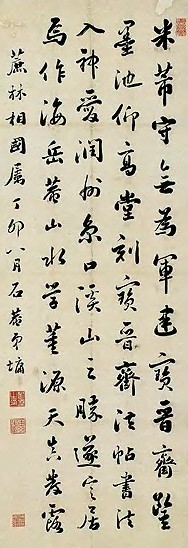 米芾守無為軍建寶晉齋鑿
墨池仰高堂刻寶晉齋法帖書法
入神愛潤州京口溪山之勝遂定居
焉作海岳菴山水學董源天真發露
蕉林相國屬丁卯八月石菴弟墉